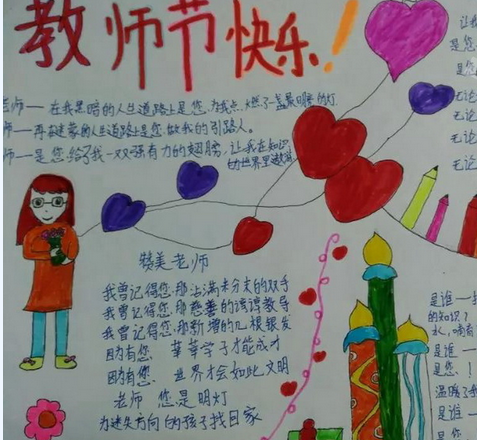 教师节快乐!
老师一在我黑暗的人生道路上是您,为我点燃了一盏最明亮的灯.
师一再在迷蒙的人生道路上是您.做我的引路人。
师一是您.给了我一双强有力的翅膀,让我在知识
的世界里遨游
赞美老师
我曾记得您那沾满半分末的双手
我曾记得您那慈善的谆谆教导
我曾记得您那新增的几根银发
因为有您. 莘莘学子才能成才
因为有您. 世界才会如此文明
老师 您是明灯
为迷失方向的孩子找回家
让我
是您
是您
无论
无论
无论
无论
是谁一
的知识?
水,哺育
是谁一
是您!
温暖了我
是谁一
是您